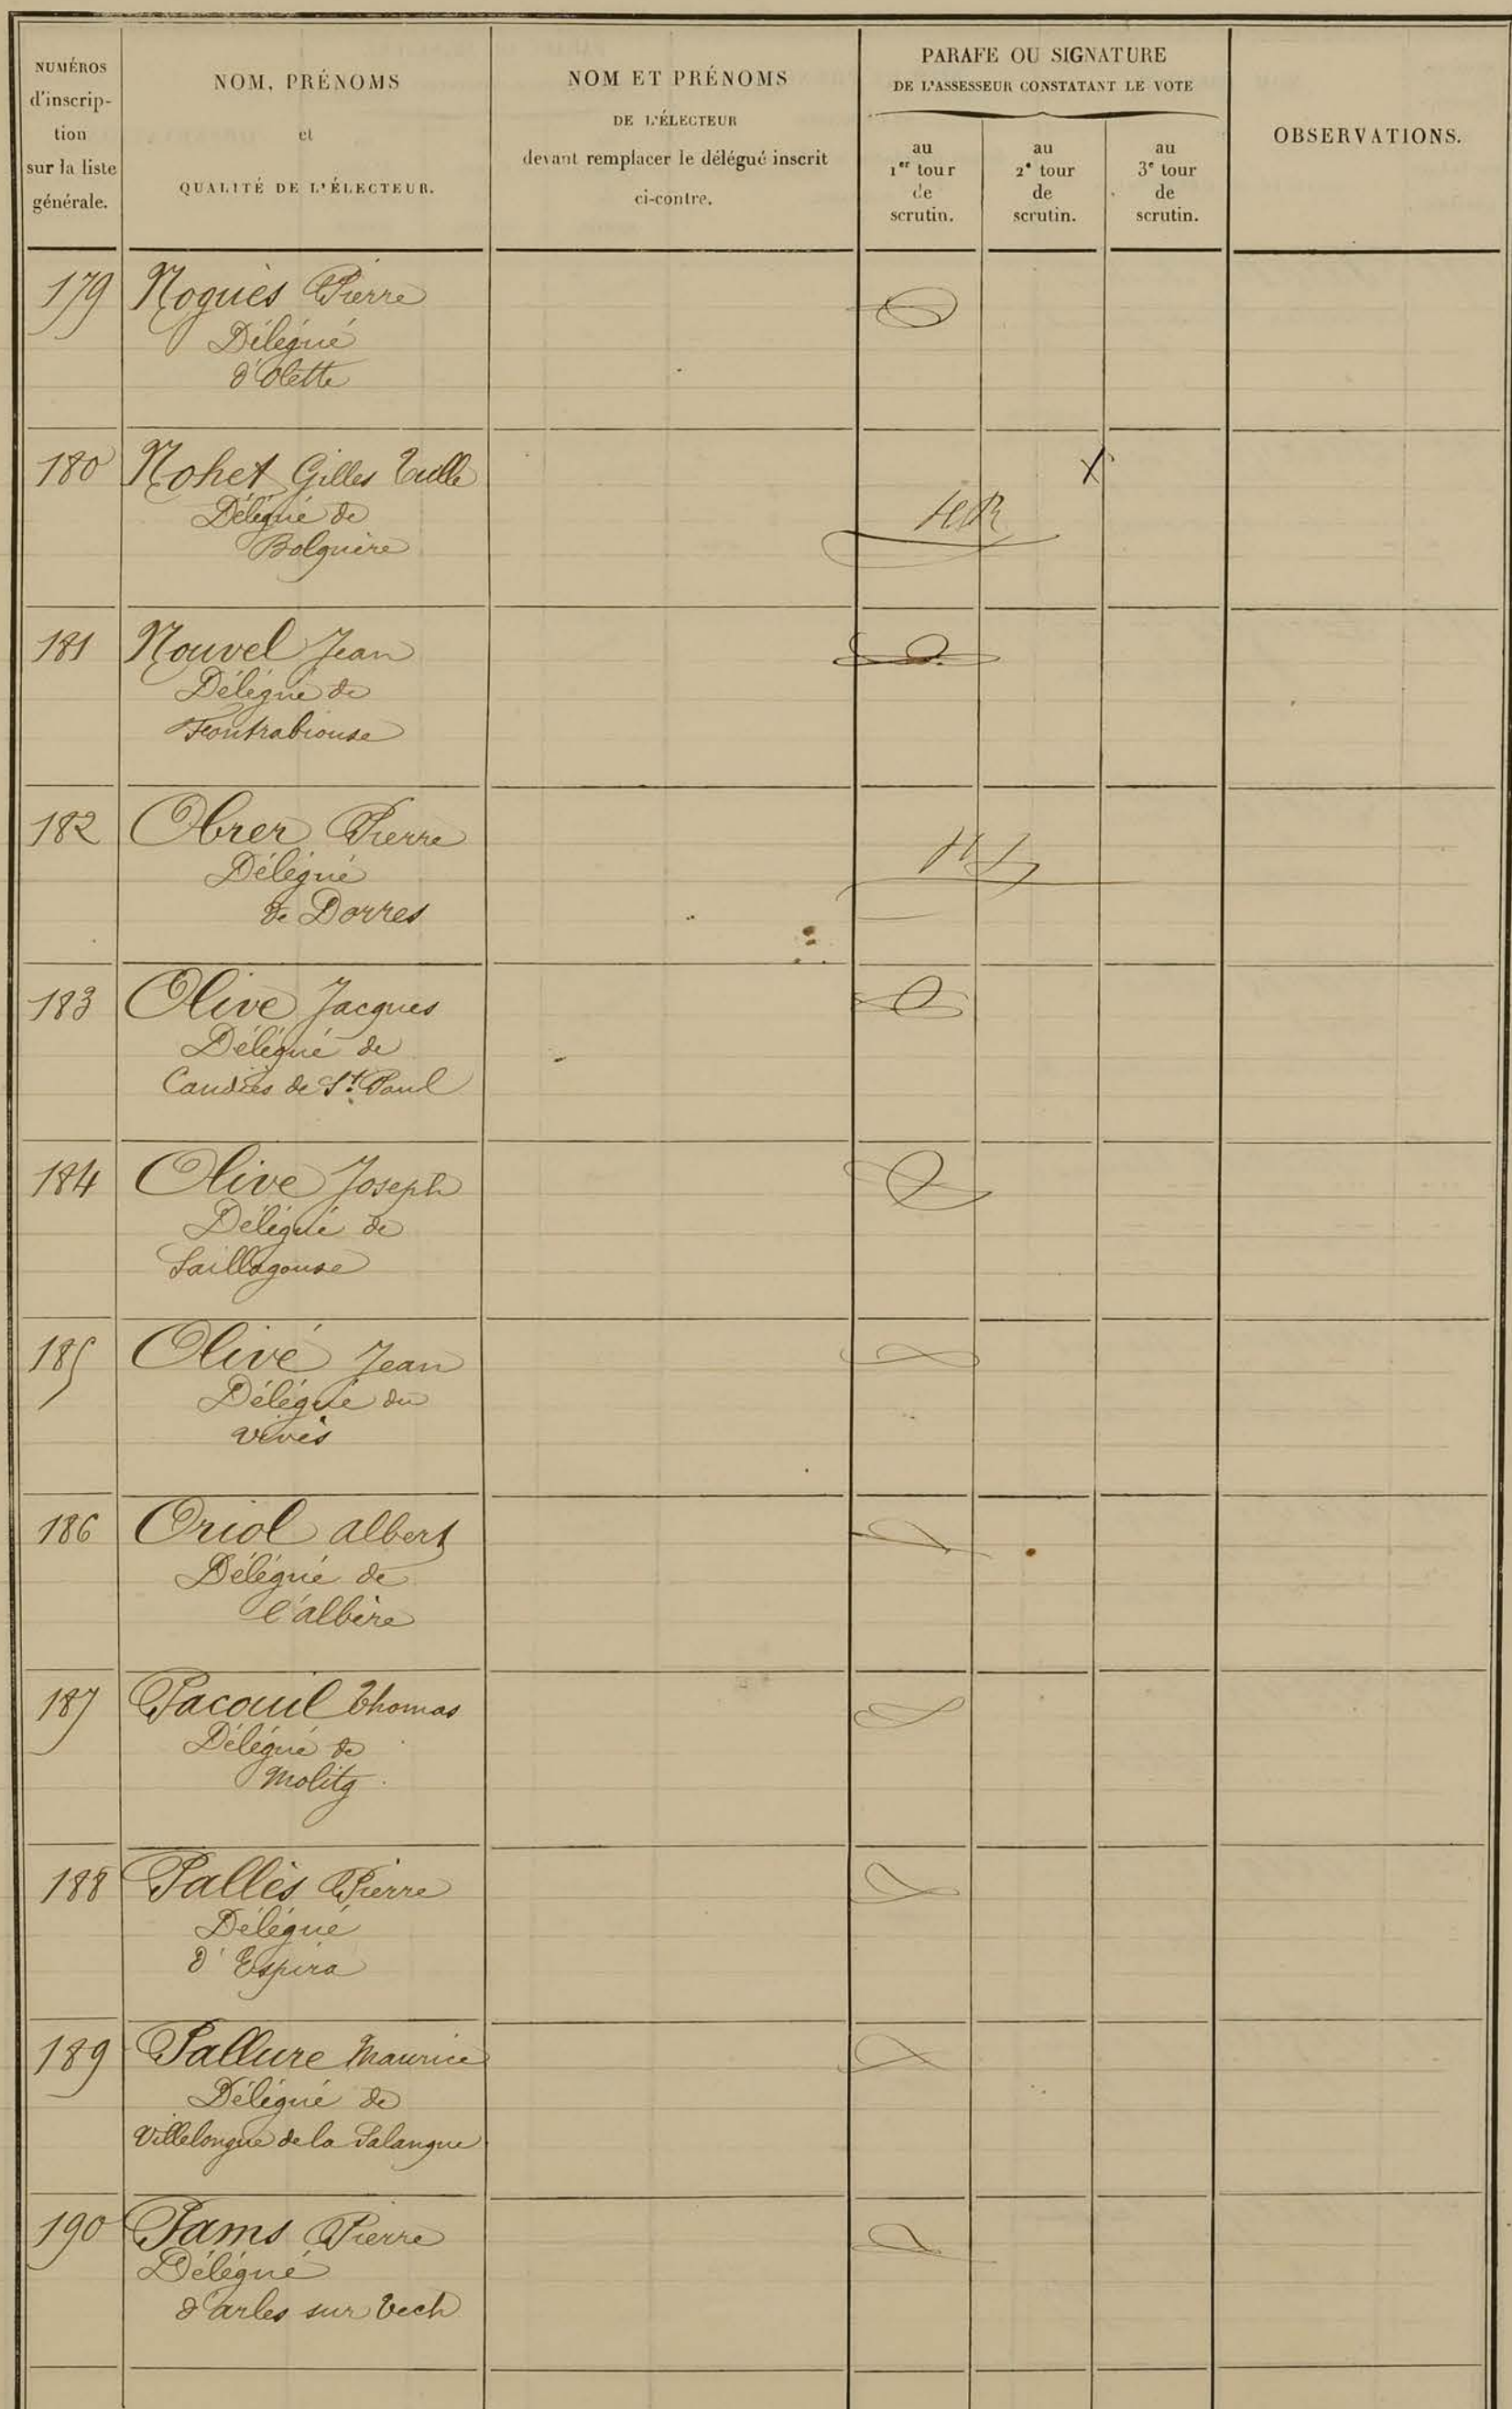 NUMÉROS
d'inscrip-
tion
sur la liste
générale.
NOM, PRÉNOMS
et
QUALITÉ DE L'ÉLECTEUR.
NOM ET PRÉNOMS
DE L'ÉLECTEUR
devant remplacer le délégué inscrit
ci-contre.
PARAFE OU SIGNATURE
DE L'ASSESSEUR CONSTATANT LE VOTE
au
1er tour
de
scrutin.
au
2e tour
de
scrutin.
au
3e tour
de
scrutin.
OBSERVATIONS.
179 Noguès Pierre
Délégué
d'Olette
180 Nohet Gilles Tulle
Délégué de
Bolquère
X
181 Nouvel Jean
Délégué de
Fontrabiouse
182 Obrer Pierre
Délégué
de Dorres
183 Olive Jacques
Délégué de
Caudiès de St. Paul
184 Olive Joseph
Délégué de
Saillagouse
185 Olivé Jean
Délégué du
Vivès
186 Oriol Albert
Délégué de
l'albère
187 Pacouil Thomas
Délégué de
Molitg
188 Pallès Pierre
Délégué
d'Espira
189 Pallure Maurice
Délégué de
Villelongue de la Salanque
190 Pams Pierre
Délégué
d'arles sur Tech